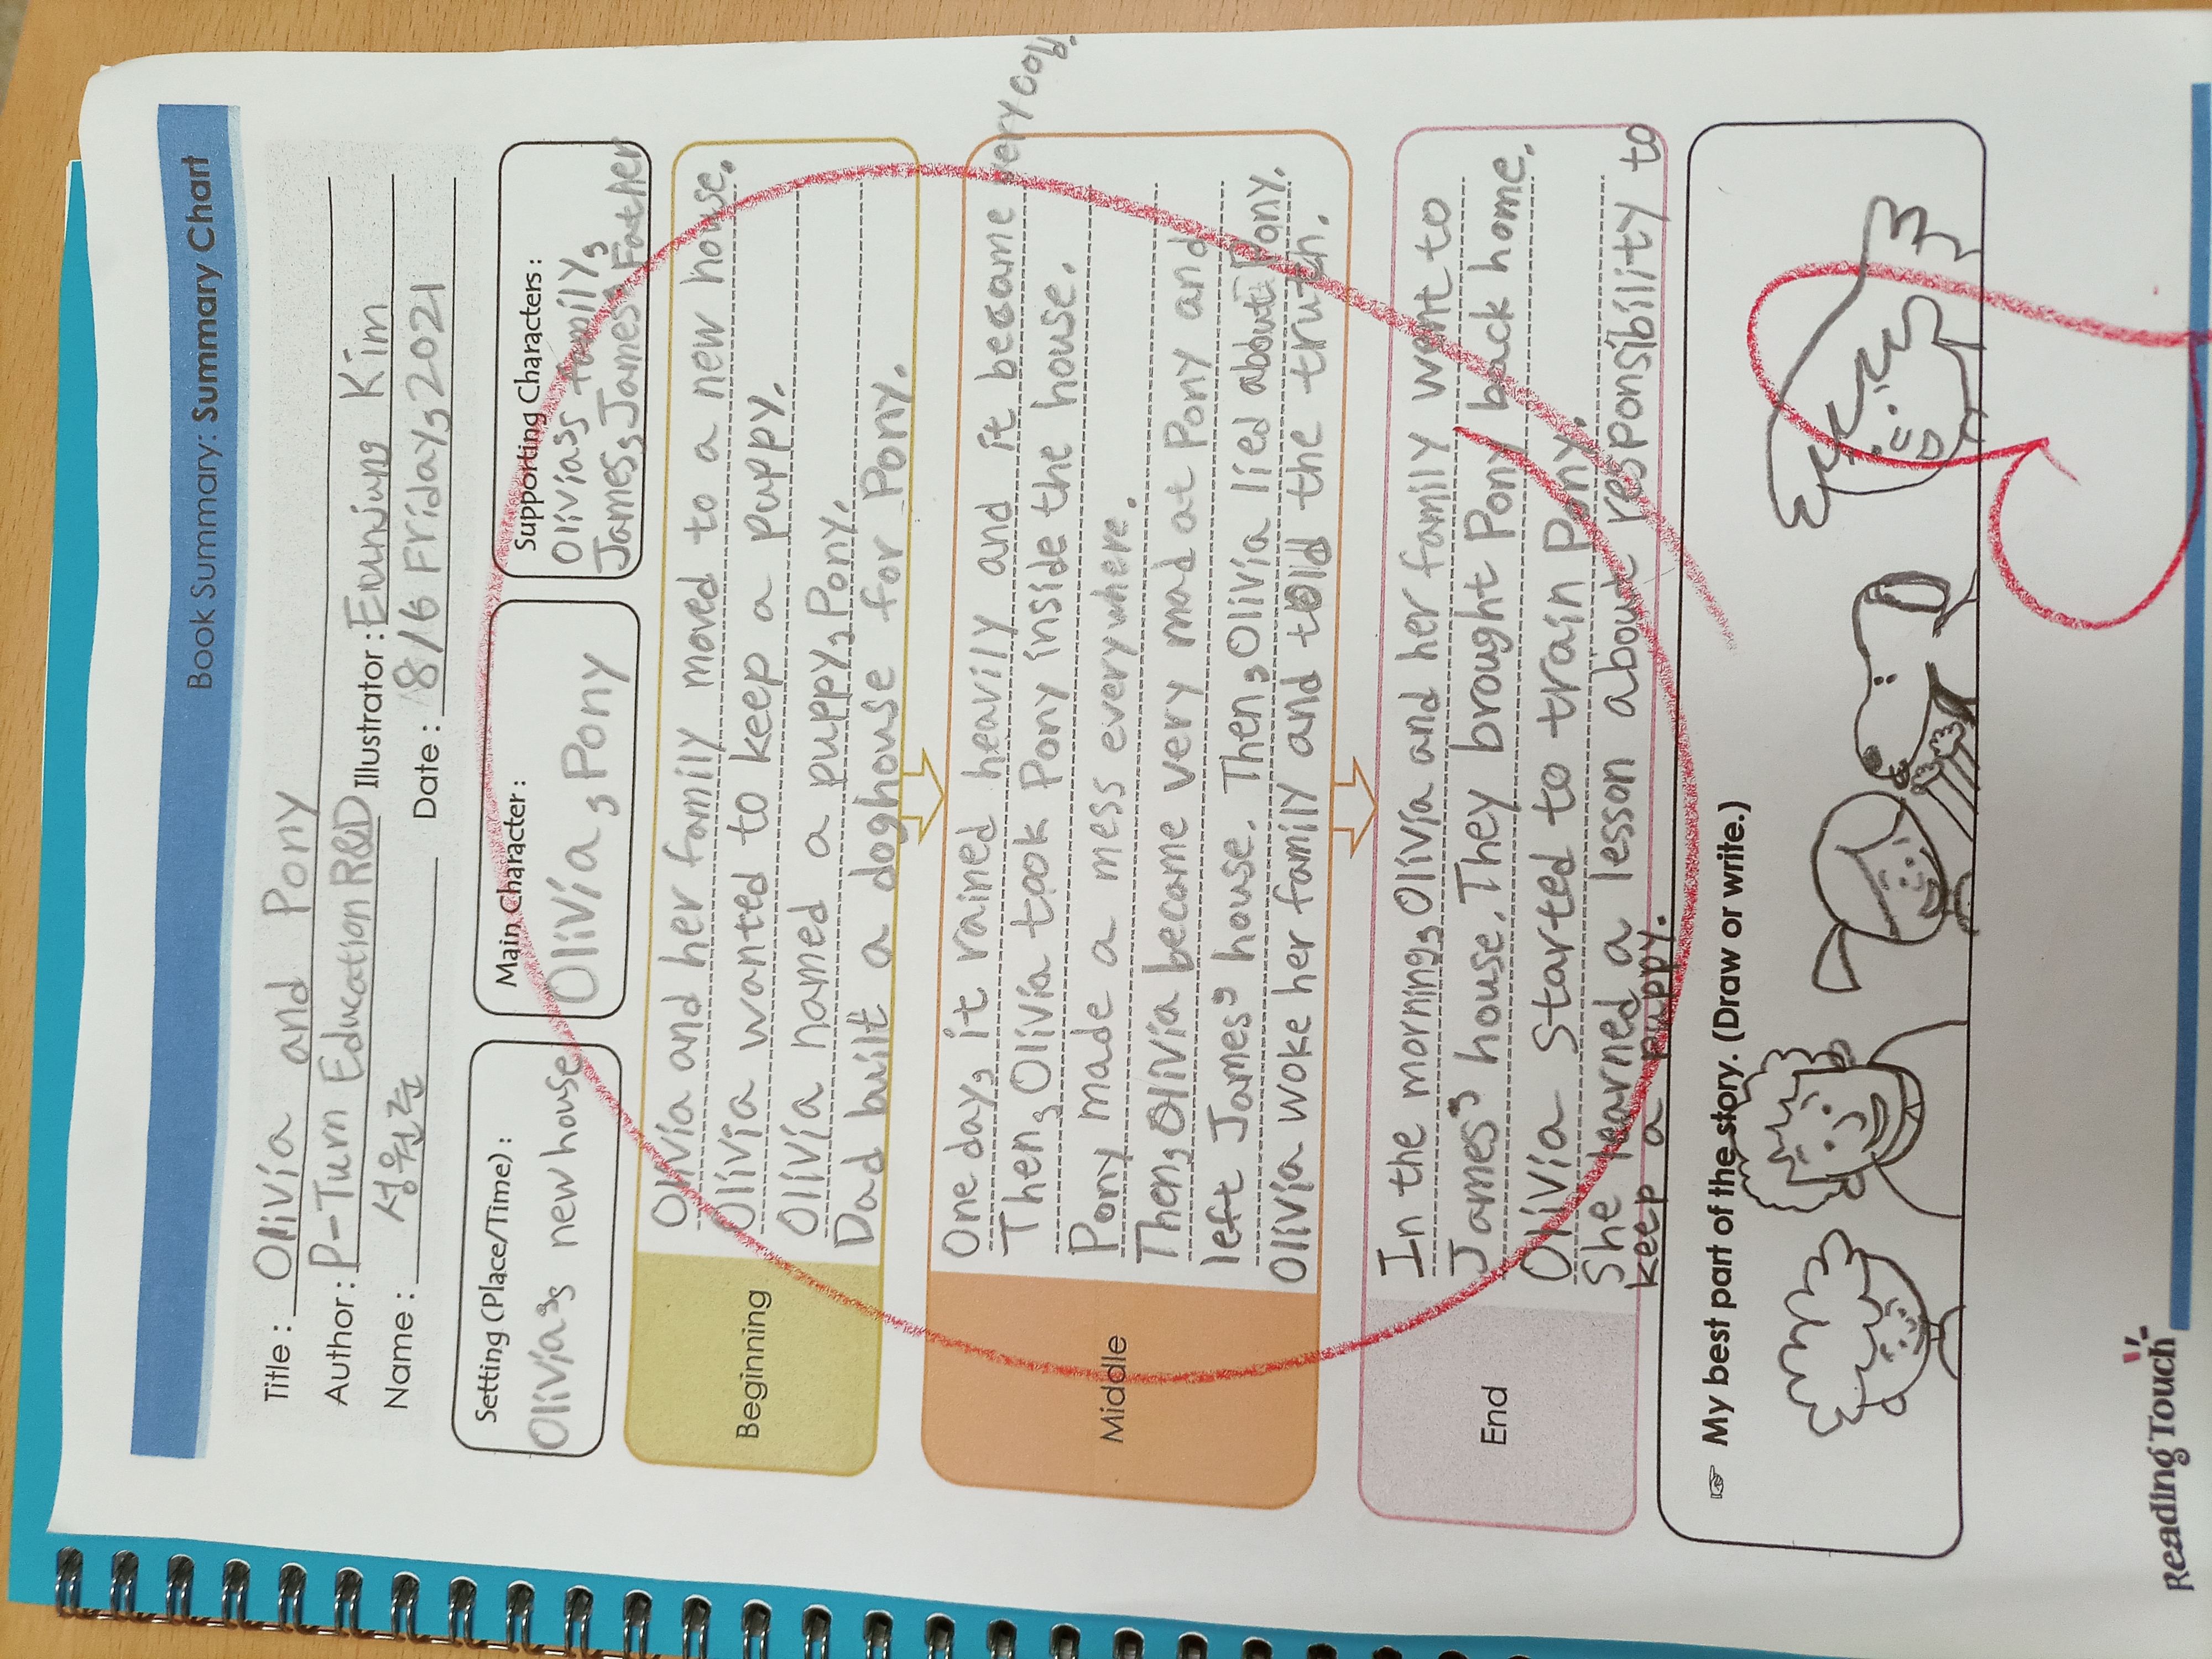 Book Summary: Summary Chart
Title : Olivia and Pony
Author : P-Turn Education R&D Illustrator : Eunjung Kim
Name : 성원준 Date : 8/6 Friday, 2021
Setting (Place/Time) :
Olivia's new house
Main Character :
Olivia, Pony
Supporting Characters :
Olivias family,
James, James Father
Beginning
Olivia and her family moved to a new house.
Olivia wanted to keep a puppy.
Olivia named a puppy, Pony.
Dad built a doghouse for Pony.
Middle
One day, it rained heavily and it became very cold.
Then, Olivia took Pony inside the house.
Pony made a mess everywhere.
Then, Olivia became very mad at Pony and
left James' house. Then, Olivia lied about Pony.
Olivia woke her family and told the truth.
End
In the morning, Olivia and her family went to
James' house. They brought Pony back home.
Olivia started to train Pony.
She learned a lesson about responsibility to
keep a puppy.
☞ My best part of the story. (Draw or write.)
Reading Touch